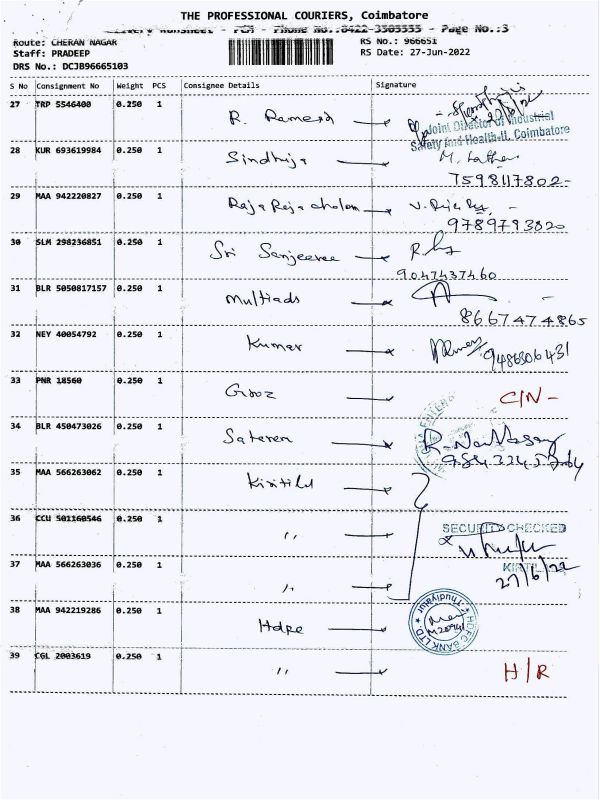 THE PROFESSIONAL COURIERS, Coimbatore
Delivery RunSheet - POA - Phone No.:0422-3505555 - Page No.:3
Route: CHERAN NAGAR RS No.: 966651
Staff: PRADEEP RS Date: 27-Jun-2022
DRS No.: DCJB96665103
S No Consignment No Weight PCS Consignee Details Signature
27 TRP 5546400 0.250 1 R. Ramesh
Joint Director of Industrial
Safety And Health-II, Coimbatore
28 KUR 693619984 0.250 1 Sindhuja M. Latha
7598117802-
29 MAA 942220827 0.250 1 Raja Raja cholan
9789793820
30 SLM 298236851 0.250 1 Sri Sanjeevee
9047437460
31 BLR 5050817157 0.250 1 Multiads
8667474865
32 NEY 40054792 0.250 1 Kumar
9486506431
33 PNR 18560 0.250 1 C/N -
34 BLR 450473026 0.250 1
35 MAA 566263062 0.250 1 Kirtilal
36 CCU 501160546 0.250 1 "
SECURITY CHECKED
37 MAA 566263036 0.250 1 "
27/6/22
38 MAA 942219286 0.250 1 Hdfc
HDFC BANK LTD. Thudiyalur
39 CGL 2003619 0.250 1 " H/R